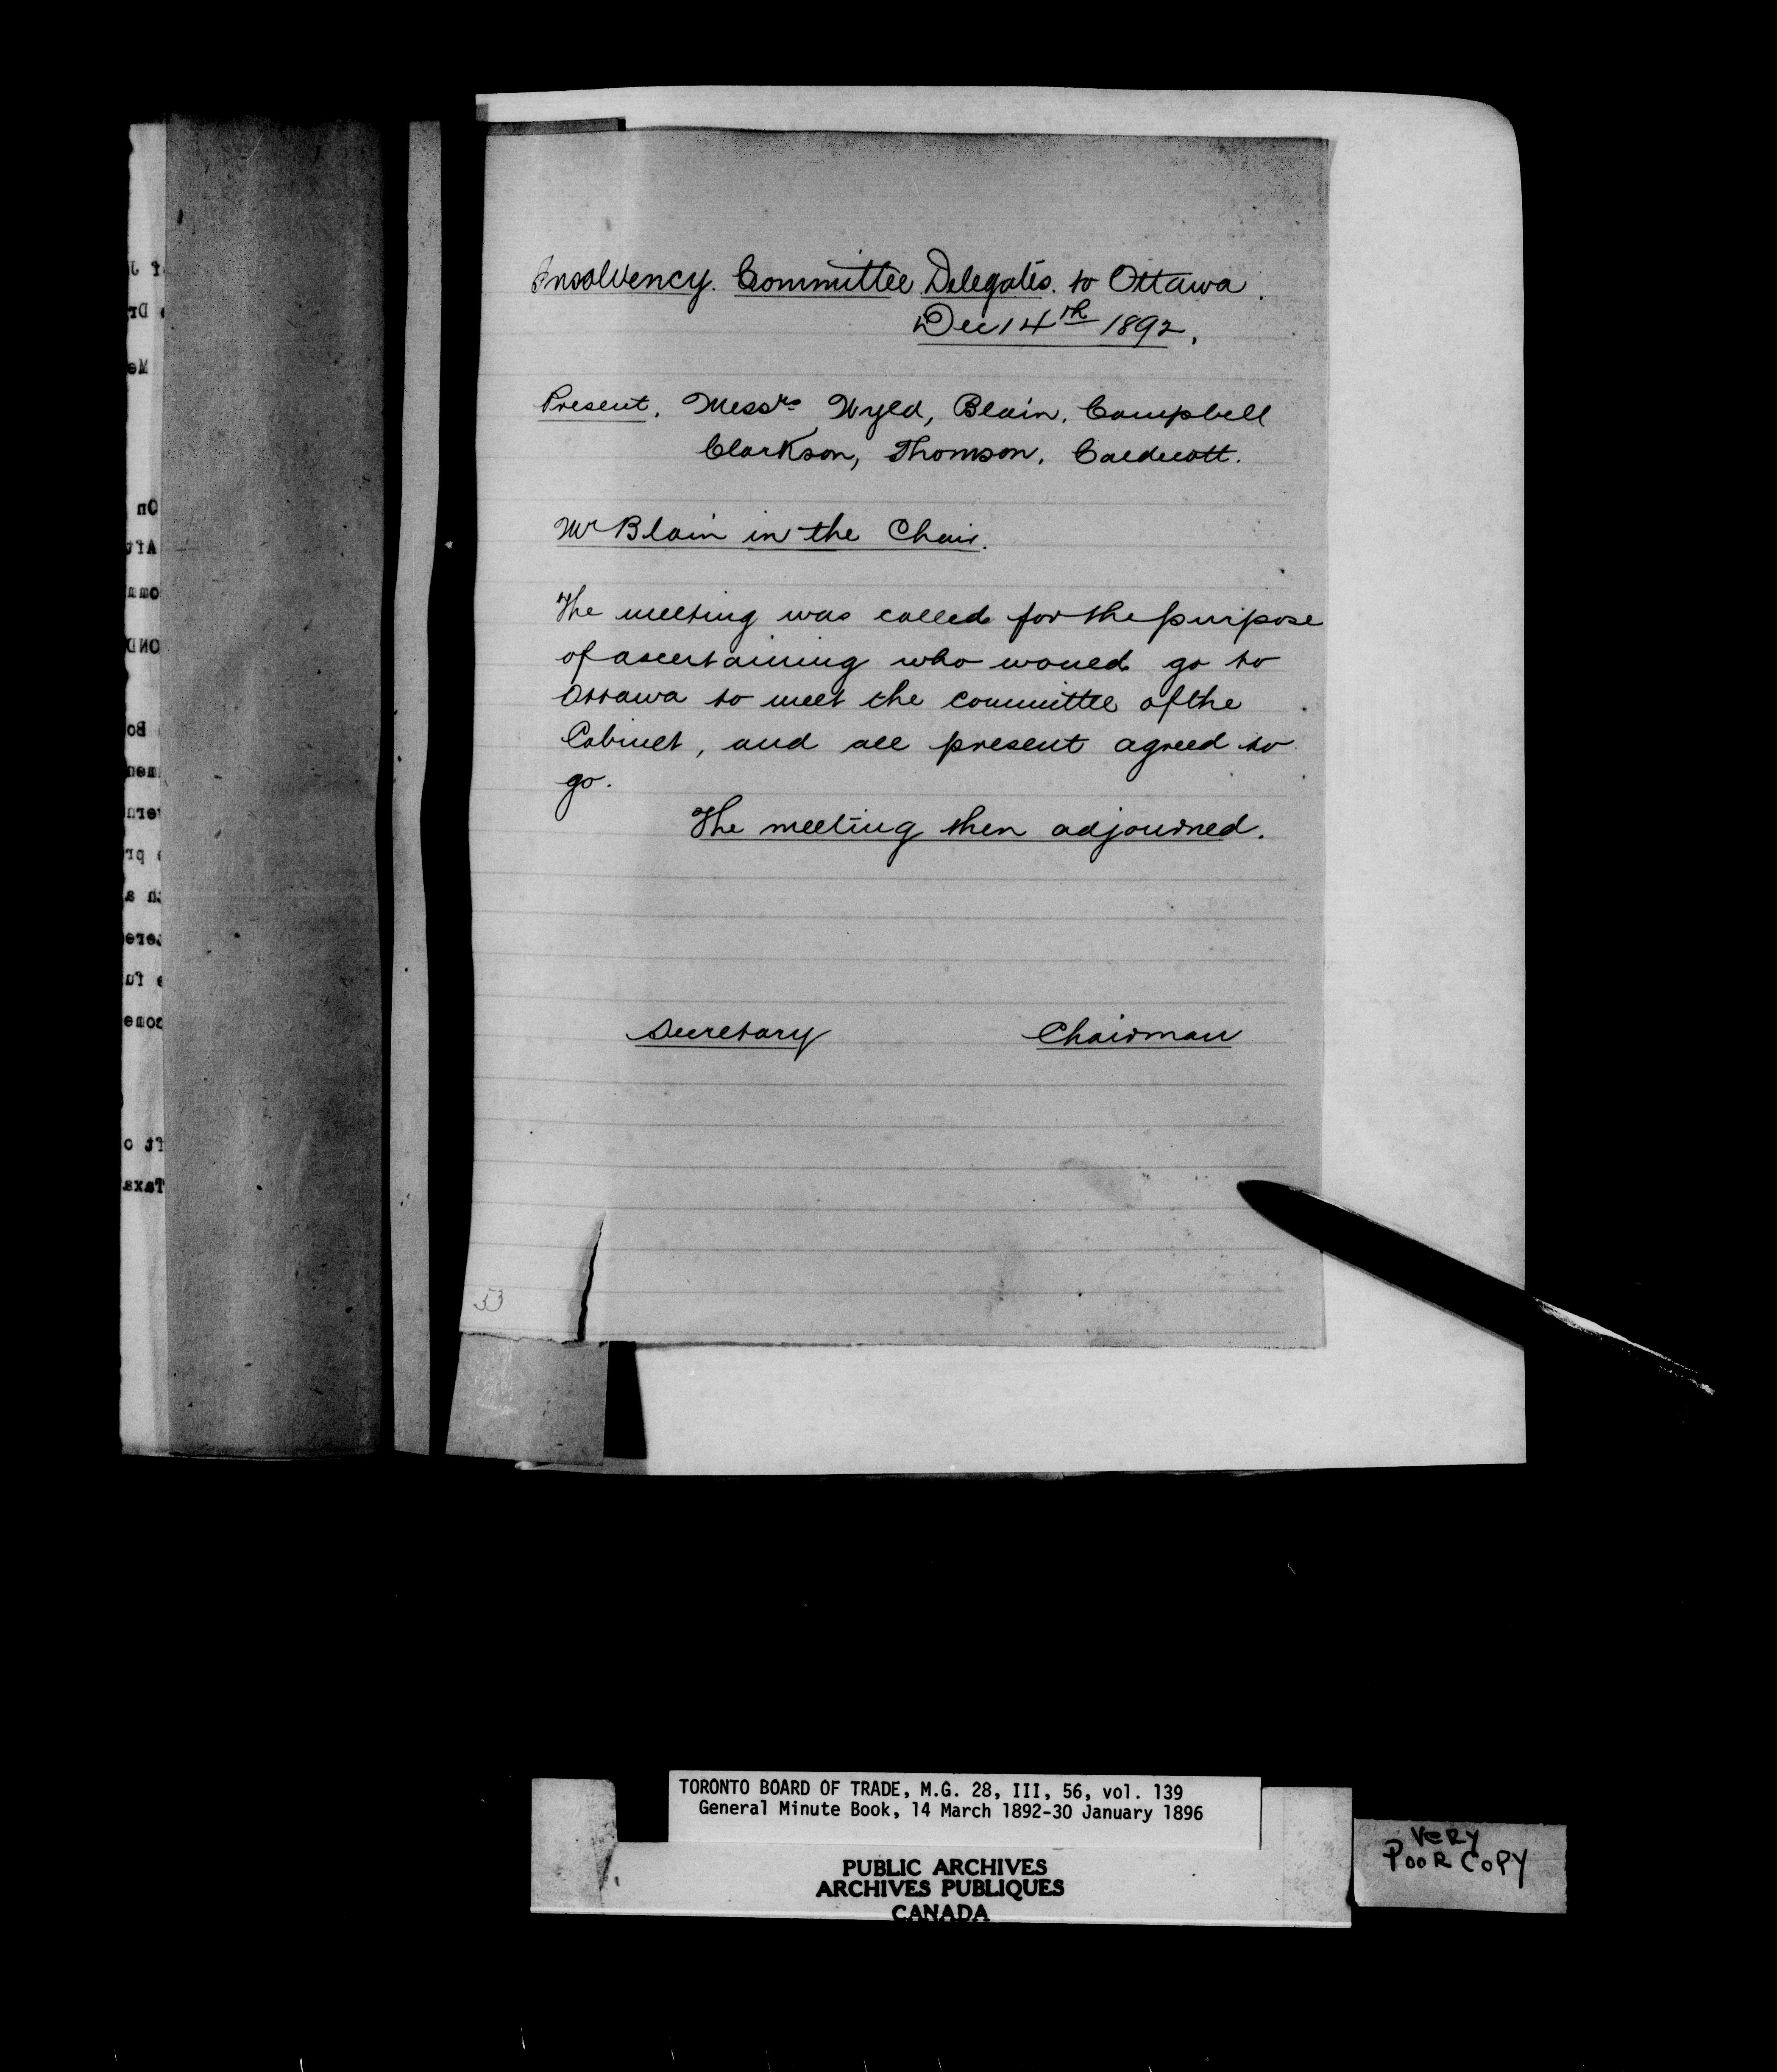 Insolvency Committee Delegates to Ottawa.
Dec 14th 1892.
Present, Messrs Wyld, Blain, Campbell
Clarkson, Thomson, Caldecott.
Mr Blain in the Chair.
The meeting was called for the purpose
of ascertaining who would go to
Ottawa to meet the committee of the
Cabinet, and all present agreed to
go.
The meeting then adjourned.
Secretary Chairman
53
TORONTO BOARD OF TRADE, M.G. 28, III, 56, vol. 139
General Minute Book, 14 March 1892-30 January 1896
PUBLIC ARCHIVES
ARCHIVES PUBLIQUES
CANADA
VERY
POOR COPY